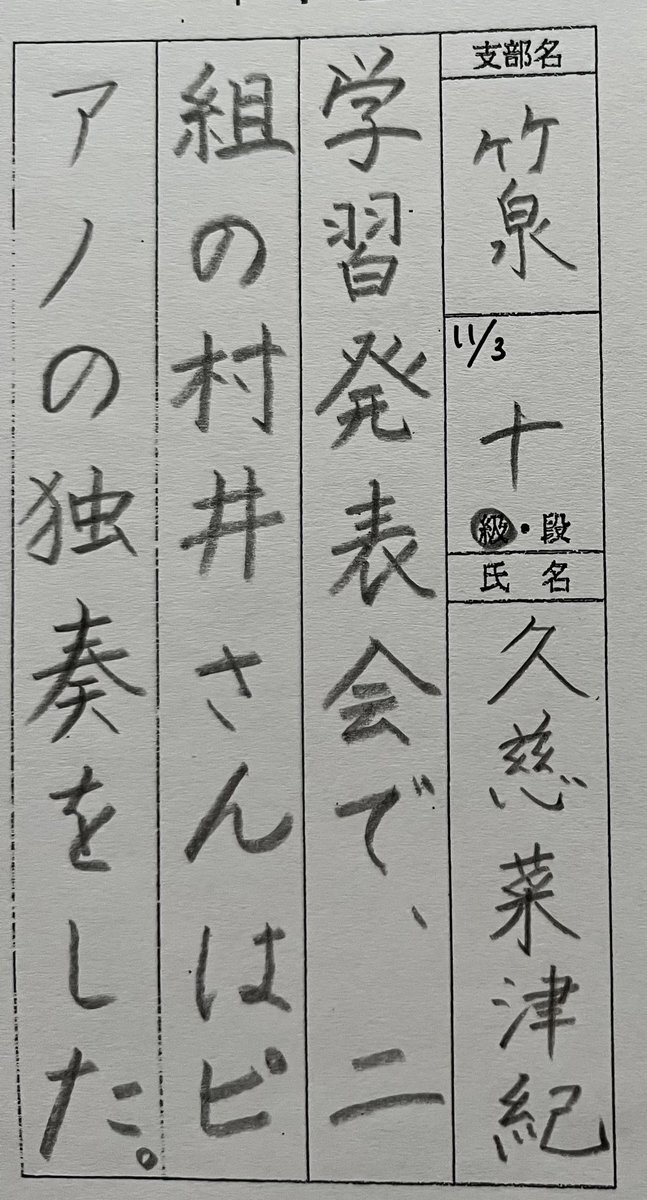 支部名
竹泉
11/3
十
級・段
氏名
久慈菜津紀
学習発表会で、二
組の村井さんはピ
アノの独奏をした。